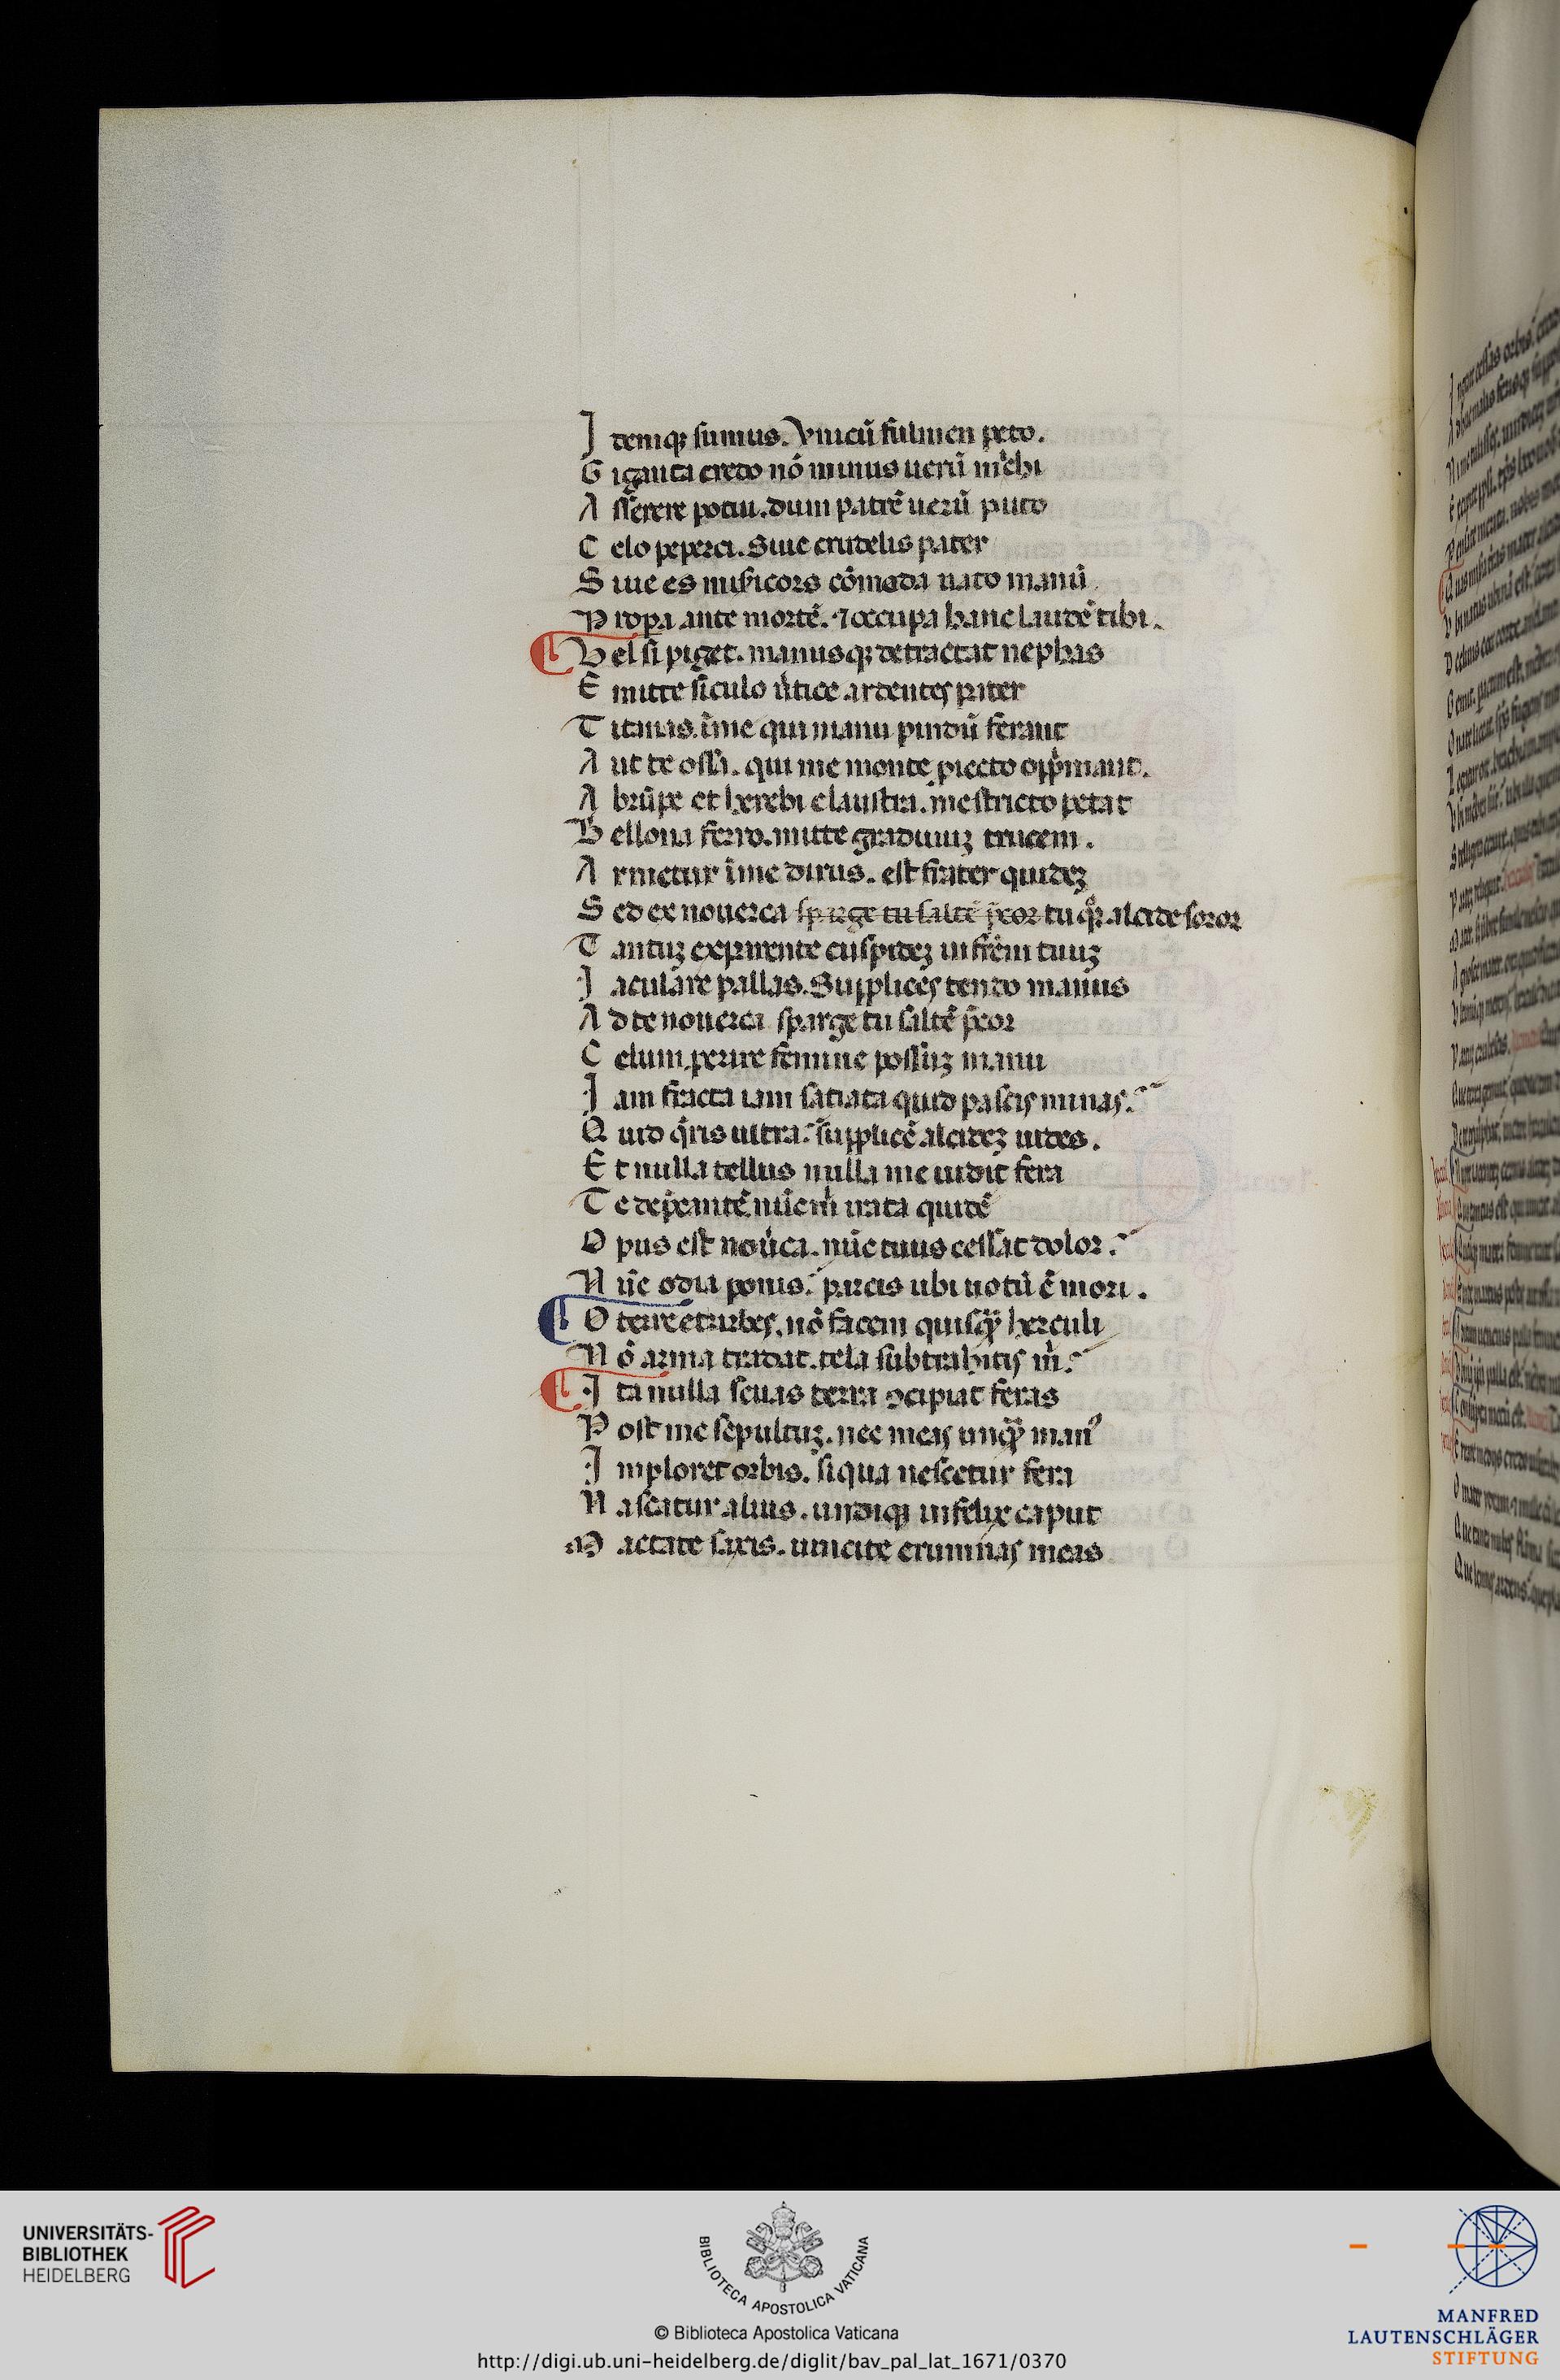 I temq; sumus. Vnicũ fulmen peto.
G iganta credo nõ minus uerũ michi
A sserere potui. dum patrẽ uerũ puto
C elo peperci. Siue crudelis pater
S iue es misicors cõmoda nato manũ
P ropa ante mortẽ. ⁊ occupa hanc laudẽ tibi.
V el si piget. manusq; detractat nephas
E mitte siculo ùtice ardentes pater
T itanas. ĩme qui manu pindũ ferant
A ut te ossa. qui me monte piecto oppmant.
A brũpe et herebi claustra. me stricto petat
B ellona ferro. mitte gradiuuz trucem.
A rmetur ĩme dirus. est frater quidez
S ed ex nouerca sparge tu saltẽ p̃cor tu qq̃. alcide soror
T antuz ex parente cuspidez in frẽm tuuz
I aculare pallas. Supplices tendo manus
A d te nouerca sparge tu saltẽ p̃cor
C elum. perire femine possuz manu
I am fracta iam satiata quid pascis minas.
Q uid q̃ris ultra. supplicẽ alcidez uides.
E t nulla tellus nulla me uidit fera
T e dep̃cantẽ nũc m̃ irata quidẽ
O pus est nou̾ca. nũc tuus cessat dolor.
N ũc odia ponis. parcis ubi uotũ ẽ mori.
O terre et urbes. nõ facem quisq̃ herculi
N õ arma tradat. tela subtrahitis m̃.
I ta nulla seuas terra ꝯcipiat feras
P ost me sepultuz. nec meas unq̃ man⁹
I mploret orbis. siqua nascetur fera
N ascatur alius. undiq; infelix caput
M actate saxis. uincite erumnas meas
UNIVERSITÄTS-
BIBLIOTHEK
HEIDELBERG
BIBLIOTECA APOSTOLICA VATICANA
© Biblioteca Apostolica Vaticana
http://digi.ub.uni-heidelberg.de/diglit/bav_pal_lat_1671/0370
MANFRED
LAUTENSCHLÄGER
STIFTUNG